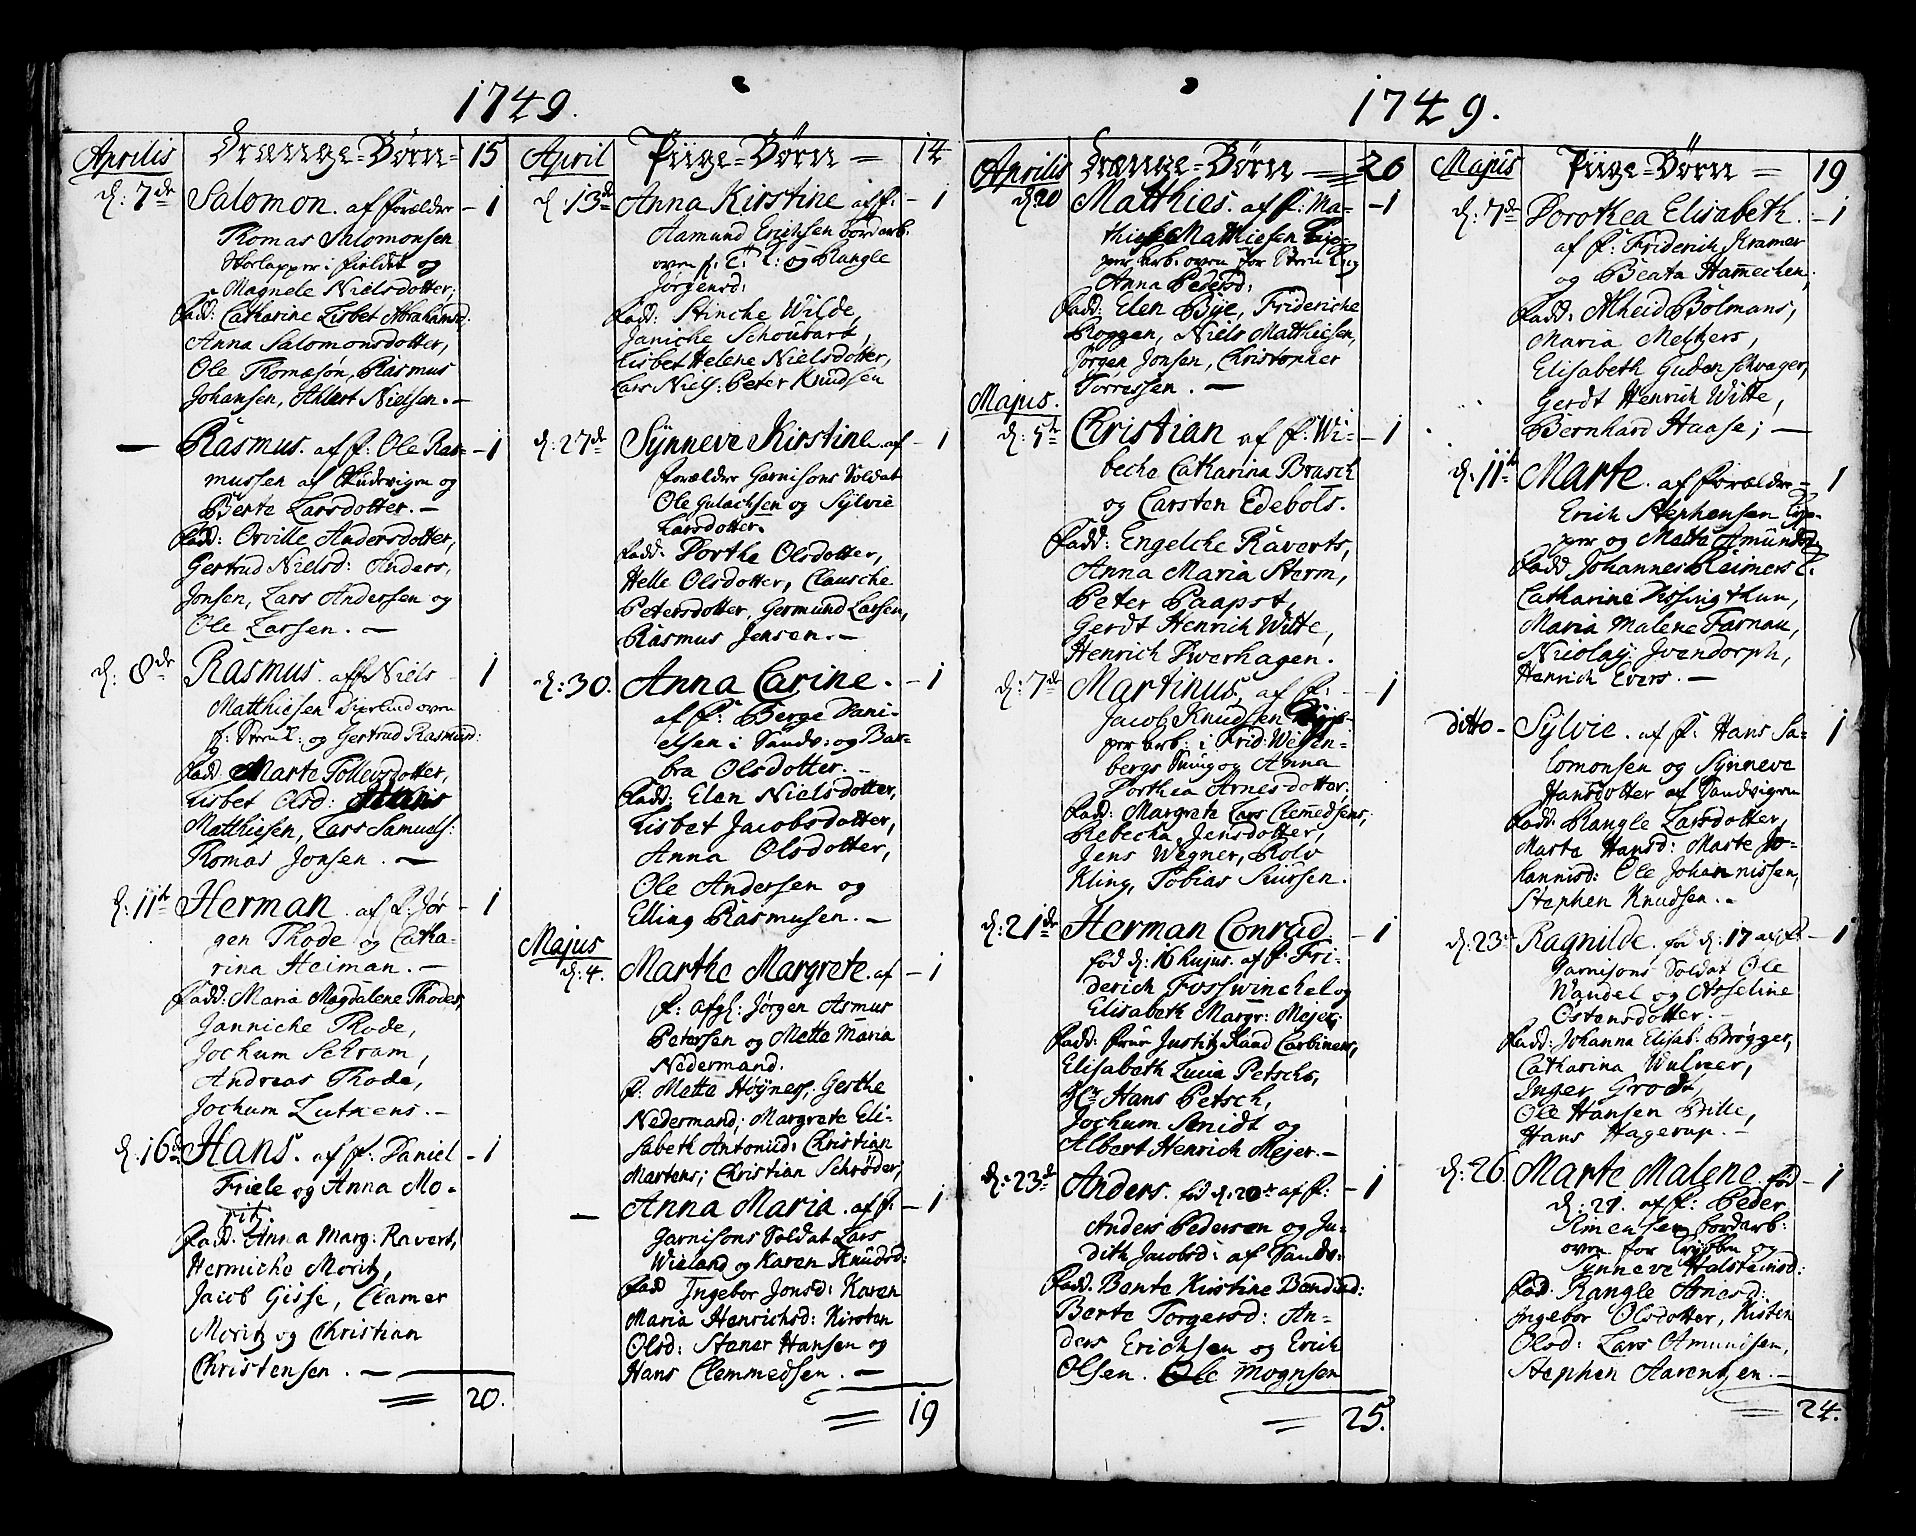 1749.
Aprilis Drænge-Børn 15
d: 7de Salomon. af forældre - 1
Thomas Salomonsen
i fieldet og
Magnele Nielsdotter;
Fadd: Catharine Lisbet Abrahamsd:
Anna Salomonsdotter,
Ole Thomæsøn, Rasmus
Johansen, Ahlert Nielsen. -
- Rasmus. af f: Ole Ras- - 1
mussen af Skudevigen og
Berte Larsdotter. -
Fadd: Orville Andersdotter,
Gertrud Nielsd: Anders
Jonsen, Lars Andersen og
Ole Larsen. -
d: 8de Rasmus. af f: Niels 1
Matthiesen oven
f: Steru T: og Gertrud Rasmusd:
Fadd Marte Tollevsdotter,
Lisbet Olsd: Hans
Matthiesen, Lars Samuels:
Thomas Jonsen. -
d: 11te Herman. af f: Jør - 1
gen Thode og Catha-
rina Heiman. -
Fadd: Maria Magdalene Thodes,
Janniche Thode,
Jochum Schram,
Andreas Thode,
Jochum Lutkens. -
d: 16de Hans. af f: Daniel - 1
Friele og Anna Mo-
ritz.
Fadd: Anna Marg: Ravert,
Hermiche Moritz,
Jacob Gisse, Clamer
Moritz og Christian
Christensen. -
= 20.
April Piige-Børn = 14
d: 13de Anna Kirstine af f: - 1
Aamund Erichsen bordarb.
oven f. T: og Rangle
Jørgensd:
Fadd: Stinche Wilde,
Janiche Schoubart,
Lisbet Helene Nielsdotter,
Lars Niels: Peter Knudsen
d: 27de Synneve Kirstine. af - 1
forældre Garnisons Soldat
Ole Gulachsen og Sylvie
Larsdotter.
Fadd: Dorthe Olsdotter,
Helle Olsdotter, Clausche
Petersdotter, Germund Larsen,
Rasmus Jensen. -
d: 30. Anna Carine. - 1
af f: Berge Dani-
elsen i Sandv: og Bar-
bra Olsdotter. -
Fadd: Elen Nielsdotter,
Lisbet Jacobsdotter,
Anna Olsdotter,
Ole Andersen og
Elling Rasmusen. -
Majus
d: 4. Marthe Margrete. af - 1
f: afgl: Jørgen Asmus
Petersen og Mette Maria
Nedermand.
f: Mette Høyners, Gerthe
Nedermand, Margrete Eli-
sabeth Antonisd: Christian
Martens; Christian Schrøder;
- Anna Maria. af f: - 1
Garnisons Soldat Lars
Wieland og Karen Knudsd:
Fadd Ingebor Jonsd: Karen
Maria Henrichsd: Kirsten
Olsd: Stener Hansen og
Hans Clemmedsen. -
= 19
1749.
Aprilis Drænge-Børn = 20
d: 20 Matthies. af f: Ma- - 1
thies Matthiesen Lige-
per arb: oven for Steru T: og
Anna Pedersd:
Fadd: Elen Bye, Frideriche
Roggen, Niels Matthiesen,
Jørgen Jonsen, Christopher
Torressen. -
Majus.
d: 5te Christian af f: Wi- - 1
beche Catharina Brasch
og Carsten Edebols.
Fadd: Engelche Raverts,
Anna Maria Sterm,
Peter Paapst,
Gerdt Henrich Witte,
Henrich Dwerhagen.
d: 7de Martinus. af f: - 1
Jacob Knudsen
per arb: i Frid: Wesen-
bergs Smug og Anna
Dorthea Arnesdotter.
Fadd: Margrete Lars Clemedsens,
Rebecka Jensdotter,
Jens Wegner, Rolv
Kling, Tobias Siursen.
d: 21de Herman Conrad - 1
fød d: 16 hujus. af f: Fri-
derich Fosswinchel og
Elisabeth Margr: Mejer.
Fadd: Frue Justitz Raad Carbiners,
Elisabeth Lucie Petschs,
Hr Hans Petsch,
Jochum Smidt og
Albert Henrich Mejer. -
d: 23de Anders. fød d: 20de af f: - 1
Anders Pedersen og Ju-
dith Jacobsd: af Sandv:
Fadd: Bente Kirstine Bendixd:
Berte Torgersd: An-
ders Erichsen og Erich
Olsen. Ole Mognsen
= 25.
Majus Piige-Børn = 19
d: 7de Dorothea Elisabeth. - 1
af f: Friderich Kramer
og Beata Hamechen;
Fadd: Alheid Bolmans,
Maria Melkers,
Elisabeth Gudenschwager,
Gerdt Henrich Witte,
Bernhard Haase; -
d: 11te Marte. af forældre - 1
Erich Stephensen
per og Marta Amundsd:
Fadd Johannes Reimers
Catharine Dessingthun,
Maria Malene Farnau,
Nicolay Ivendorph,
Henrich Evers. -
ditto - Sylvie. af f: Hans Sa- 1
lomonsen og Synneve
Hansdotter af Sandvigen
Fadd: Rangle Larsdotter,
Marte Hansd: Marte Jo-
hannisd: Ole Johannissen,
Stephen Knudsen. -
d: 23 - Ragnilde. fød d: 17 af f: - 1
Garnisons Soldat Ole
Wandel og Asseline
Ostensdotter. -
Fadd: Johanna Elisab: Brøgger,
Catharina Wulner,
Inger Grodt,
Ole Hansen Bille,
Hans Hagerup. -
d: 26. Marte Malene. fød - 1
d: 21. af f: Peder
Simensen bordarb:
oven for Trybben og
Synneve Holsteinsd:
Fad: Rangle Arnesd:
Ingebor Olsdotter, Kisten
Olsd: Lars Amundsen,
Stephen Aarentzen. -
= 24.